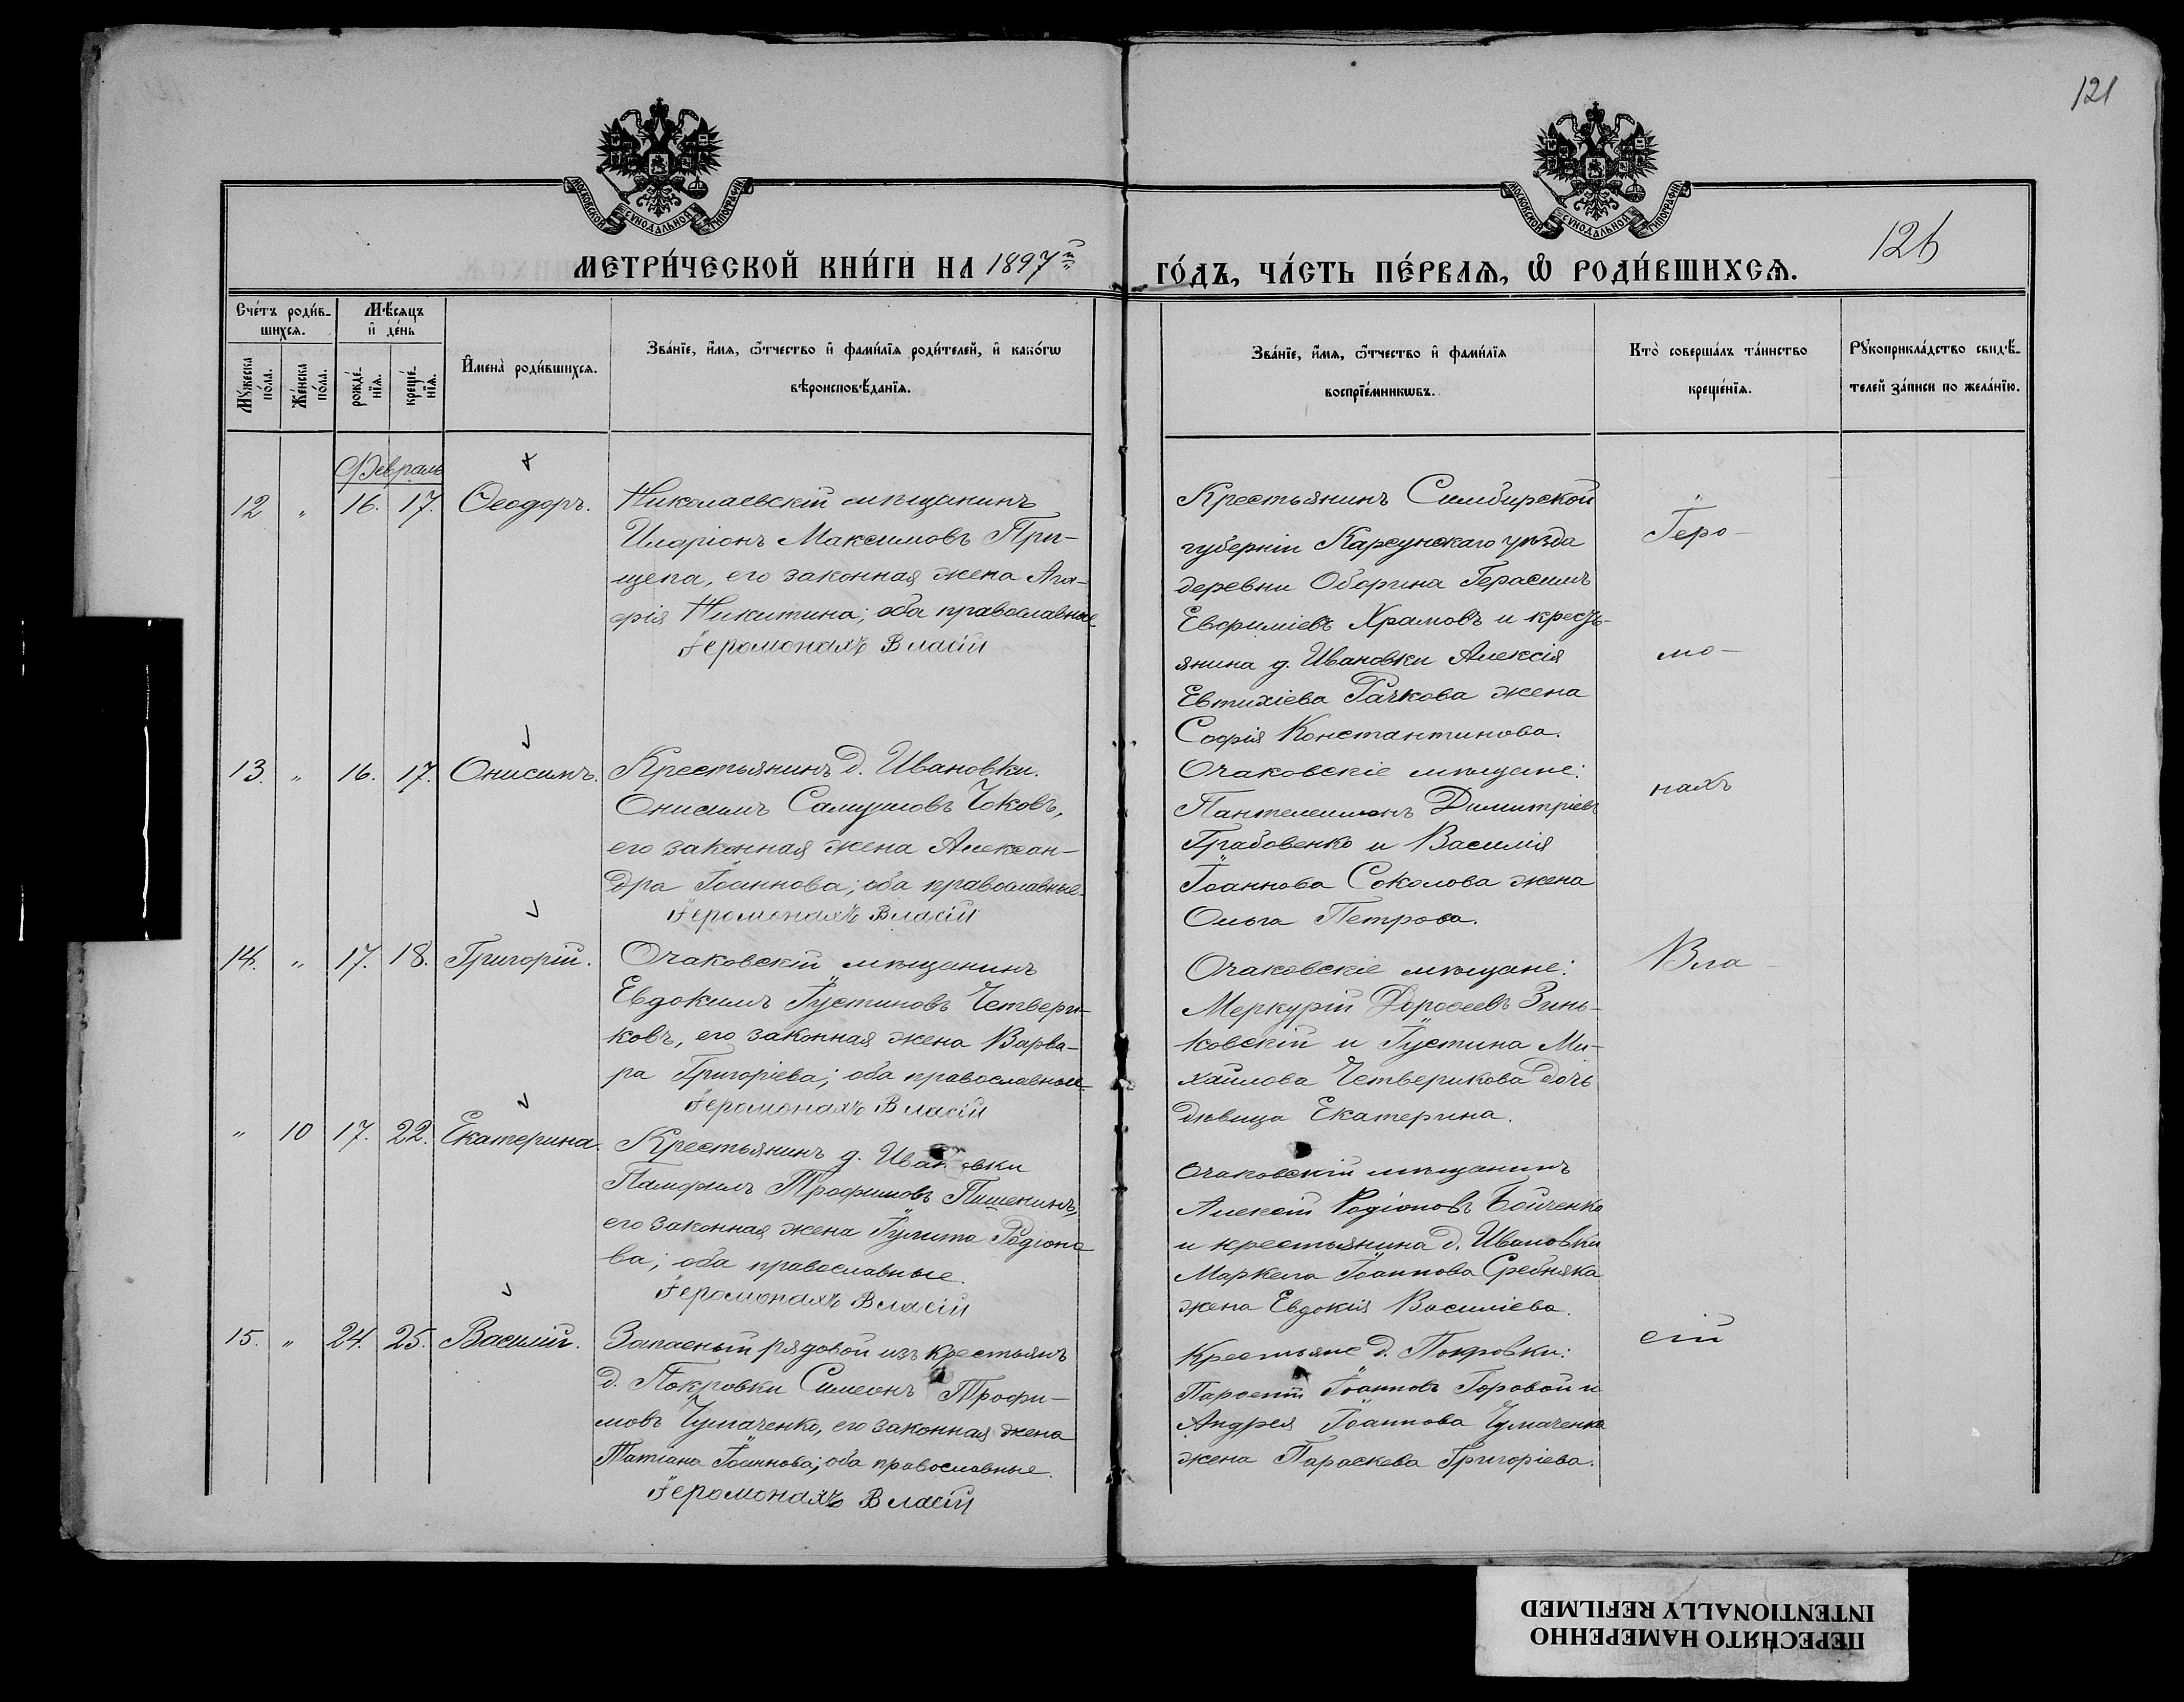 121
МОСКОВСКОЙ СѴНОДАЛЬНОЙ ТИПОГРАФІИ
МОСКОВСКОЙ СѴНОДАЛЬНОЙ ТИПОГРАФІИ
126
МЕТРИ́ЧЕСКОЙ КНИ́ГИ НА 1897й
ГО́ДЪ, ЧА́СТЬ ПЕ́РВАѦ, Ѡ҆ РОДИ́ВШИХСѦ.
Сче́тъ роди́в-
шихсѧ.
Мꙋ́жеска
по́ла.
Же́нска
по́ла.
Мѣ́сѧцъ
и҆ де́нь
рожде́-
нїѧ.
креще́-
нїѧ.
И҆мена̀ роди́вшихсѧ.
Зва́нїе, и҆́мѧ, ѻ҆́тчество и҆ фами́лїѧ роди́телей, и҆ како́гѡ
вѣроисповѣ́данїѧ.
Зва́нїе, и҆́мѧ, ѻ҆́тчество и҆ фами́лїѧ
воспрїе́мникѡвъ.
Кто̀ соверша́лъ та́инство
креще́нїѧ.
Рꙋкоприкла́дство свидѣ́-
телей за́писи по жела́нїю.
Февраль
12 " 16. 17. Ѳеодоръ.
Николаевскій мѣщанинъ
Иларіонъ Максимовъ При-
щепа, его законная жена Ага-
фія Никитина; оба православные
Іеромонахъ Власій
Крестьянинъ Симбирской
губерніи Карсунскаго уѣзда
деревни Оборина Герасимъ
Евфиміевъ Храмовъ и кресть-
янина д. Ивановки Алексія
Евтихіева Рачкова жена
Софія Константинова.
Іеро-
мо-
13. " 16. 17. Онисимъ.
Крестьянинъ д. Ивановки.
Онисимъ Самуиловъ Чоковъ,
его законная жена Алексан-
дра Іоаннова; оба православные.
Іеромонахъ Власій
Очаковскіе мѣщане:
Пантелеимонъ Димитріевъ
Грабовенко и Василія
Іоаннова Соколова жена
Ольга Петрова.
нахъ
14. " 17. 18. Григорій.
Очаковскій мѣщанинъ
Евдокимъ Іустиновъ Четвери-
ковъ, его законная жена Варва-
ра Григоріева; оба православные.
Іеромонахъ Власій
Очаковскіе мѣщане:
Меркурій Дороѳеевъ Зинь-
ковскій и Іустина Ми-
хаилова Четверикова дочь
дѣвица Екатерина.
Вла-
" 10 17. 22. Екатерина.
Крестьянинъ д. Ивановки
Памфилъ Трофимовъ Пишенинъ,
его законная жена Іулита Родіоно-
ва; оба православные.
Іеромонахъ Власій
Очаковскій мѣщанинъ
Алексій Родіоновъ Бойченко
и крестьянина д. Ивановки
Маркела Іоаннова Сребняка
жена Евдокія Василіева.
15. " 24. 25. Василій.
Запасный рядовой изъ крестьянъ
д. Покровки Симеонъ Трофи-
мовъ Чумаченко, его законная жена
Татіана Іоаннова; оба православные.
Іеромонахъ Власій
Крестьяне д. Покровки:
Парѳеній Іоанновъ Горовой и
Андрея Іоаннова Чумаченко
жена Параскева Григоріева.
сій
ПЕРЕСНЯТО НАМЕРЕННО
INTENTIONALLY REFILMED